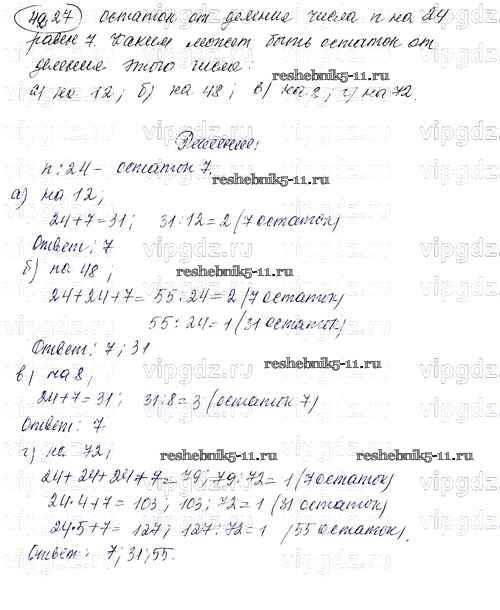 49.27 остаток от деление числа n на 24
равен 7. Каким может быть остаток от
деление этого числа:
reshebnik5-11.ru
а) на 12; б) на 48; в) на 8; г) на 72.
Решение:
n:24 - остаток 7.
reshebnik5-11.ru
а) на 12;
24+7=31; 31:12=2 (7 остаток)
Ответ: 7
б) на 48;
reshebnik5-11.ru
24+24+7= 55:24=2 (7 остаток)
55:24=1 (31 остаток)
Ответ: 7; 31
в) на 8;
reshebnik5-11.ru
24+7=31; 31:8=3 (остаток 7)
Ответ: 7
г) на 72;
reshebnik5-11.ru
24+24+24+7=79; 79:72=1 (7 остаток)
24·4+7=103; 103:72=1 (31 остаток)
24·5+7=127; 127:72=1 (55 остаток).
Ответ: 7; 31; 55.